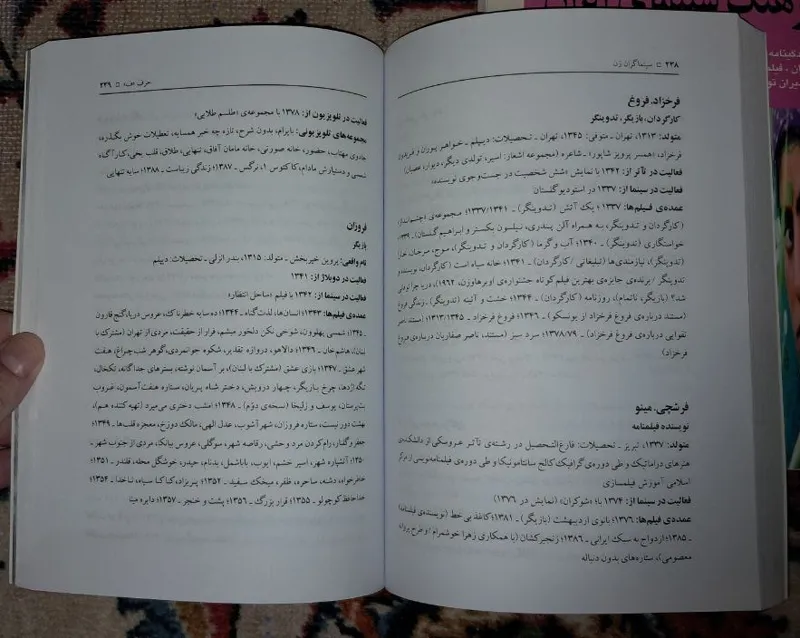 ۲۳۸ □ سینماگران زن
فرخزاد، فروغ
کارگردان، بازیگر، تدوینگر
متولد: ۱۳۱۳، تهران ـ متوفی: ۱۳۴۵، تهران ـ تحصیلات: دیپلم ـ خواهر پوران و فریدون
فرخزاد، (همسر پرویز شاپور) ـ شاعره (مجموعه اشعار: اسیر، تولدی دیگر، دیوار، عصیان)
فعالیت در تآتر از: ۱۳۴۲ با نمایش «شش شخصیت در جست‌وجوی نویسنده»
فعالیت در سینما از: ۱۳۳۷ در استودیو گلستان
عمده‌ی فیلم‌ها: ۱۳۳۷؛ یک آتش (تدوینگر) ـ ۱۳۳۷/۱۳۴۱؛ مجموعه‌ی
(کارگردان و تدوینگر، به همراه آلن پندری، نیلسون بکستر و ابراهیم گلستان) ـ
خواستگاری (تدوینگر) ـ ۱۳۴۰؛ آب و گرما (کارگردان و تدوینگر)، موج، مرجان، خارا
(تدوینگر)، نیازمندی‌ها (تبلیغاتی /کارگردان) ـ ۱۳۴۱؛ خانه سیاه است (کارگردان، نویسنده و
تدوینگر / برنده‌ی جایزه‌ی بهترین فیلم کوتاه جشنواره‌ی اوبرهاوزن، ۱۹۶۲)، دریا چرا توفانی
شد؟ (بازیگر، ناتمام)، روزنامه (کارگردان) ـ ۱۳۴۴؛ خشت و آینه (تدوینگر) ـ زندگی فروغ
(مستند درباره‌ی فروغ فرخزاد از یونسکو) ـ ۱۳۴۶؛ فروغ فرخزاد ـ ۱۳۱۳/۱۳۴۵؛ (مستند،
تقوایی درباره‌ی فروغ فرخزاد) ـ ۱۳۷۸/۷۹؛ سرد سبز (مستند، ناصر صفاریان درباره‌ی فروغ
فرخزاد)
فرشچی، مینو
نویسنده فیلمنامه
متولد: ۱۳۳۷، تبریز ـ تحصیلات: فارغ‌التحصیل در رشته‌ی تآتر عروسکی از دانشکده‌ی
هنرهای دراماتیک و طی دوره‌ی گرافیک کالج سانتامونیکا و طی دوره‌ی فیلمنامه‌نویسی از مرکز
اسلامی آموزش فیلمسازی
فعالیت در سینما از: ۱۳۷۴ با؛ «شوکران» (نمایش در ۱۳۷۶)
عمده‌ی فیلم‌ها: ۱۳۷۶؛ بانوی اردیبهشت (بازیگر) ـ ۱۳۸۱؛ کاغذ بی خط (نویسنده‌ی فیلمنامه)
ـ ۱۳۸۵؛ ازدواج به سبک ایرانی ـ ۱۳۸۶؛ زنجیرکشان (با همکاری زهرا خوشمرام / و طرح پروانه
معصومی)، ستاره‌های بدون دنباله
حرف «ف» □ ۲۳۹
فعالیت در تلویزیون از: ۱۳۷۸ با مجموعه‌ی «طلسم طلایی»
مجموعه‌های تلویزیونی: بایرام، بدون شرح، تازه چه خبر همسایه، تعطیلات خوش بگذره،
جادوی مهتاب، حضور، خانه صورتی، خانه مامان آفاق، تنهایی، طلاق، قلب یخی، کارآگاه
شمسی و دستیارش مادام، کاکتوس ۱، نرگس ـ ۱۳۸۷؛ زندگی زیباست ـ ۱۳۸۸؛ سایه تنهایی
فروزان
بازیگر
نام واقعی: پروین خیربخش ـ متولد: ۱۳۱۵، بندر انزلی ـ تحصیلات: دیپلم
فعالیت در دوبلاژ از: ۱۳۴۱
فعالیت در سینما از: ۱۳۴۲ با فیلم «ساحل انتظار»
عمده‌ی فیلم‌ها: ۱۳۴۳؛ انسان‌ها، لذت گناه ـ ۱۳۴۴؛ ده سایه خطرناک، عروس دریا، گنج قارون
ـ ۱۳۴۵؛ شمسی پهلوون، شوخی نکن دلخور میشم، فرار از حقیقت، مردی از تهران (مشترک با
لبنان)، هاشم خان ـ ۱۳۴۶؛ دالاهو، دروازه تقدیر، شکوه جوانمردی، گوهر شب چراغ، هفت
شهر عشق ـ ۱۳۴۷؛ بازی عشق (مشترک با لبنان)، بر آسمان نوشته، بسترهای جداگانه، تکخال،
تنگه اژدها، چرخ بازیگر، چهار درویش، دختر شاه پریان، ستاره هفت آسمون، غروب
بت‌پرستان، یوسف و زلیخا (نسخه‌ی دوّم) ـ ۱۳۴۸؛ امشب دختری می‌میرد (تهیه‌کننده هم)،
بهشت دور نیست، ستاره فروزان، شهر آشوب، عدل الهی، مالک دوزخ، معجزه قلب‌ها ـ ۱۳۴۹؛
جعفر گلنار، رام کردن مرد وحشی، رقاصه شهر، سوگلی، عروس بیانک، مردی از جنوب شهر ـ
۱۳۵۰؛ آتشپاره شهر، اسیر خشم، ایوب، باباشمل، بدنام، حیدر، خوشگل محله، قلندر ـ ۱۳۵۱؛
خاطرخواه، دشنه، ساحره، ظفر، میخک سفید ـ ۱۳۵۲؛ پریزاد، کاکا سیاه، ناخدا ـ ۱۳۵۴؛
خداحافظ کوچولو ـ ۱۳۵۵؛ قرار بزرگ ـ ۱۳۵۶؛ پشت و خنجر ـ ۱۳۵۷؛ دایره مینا